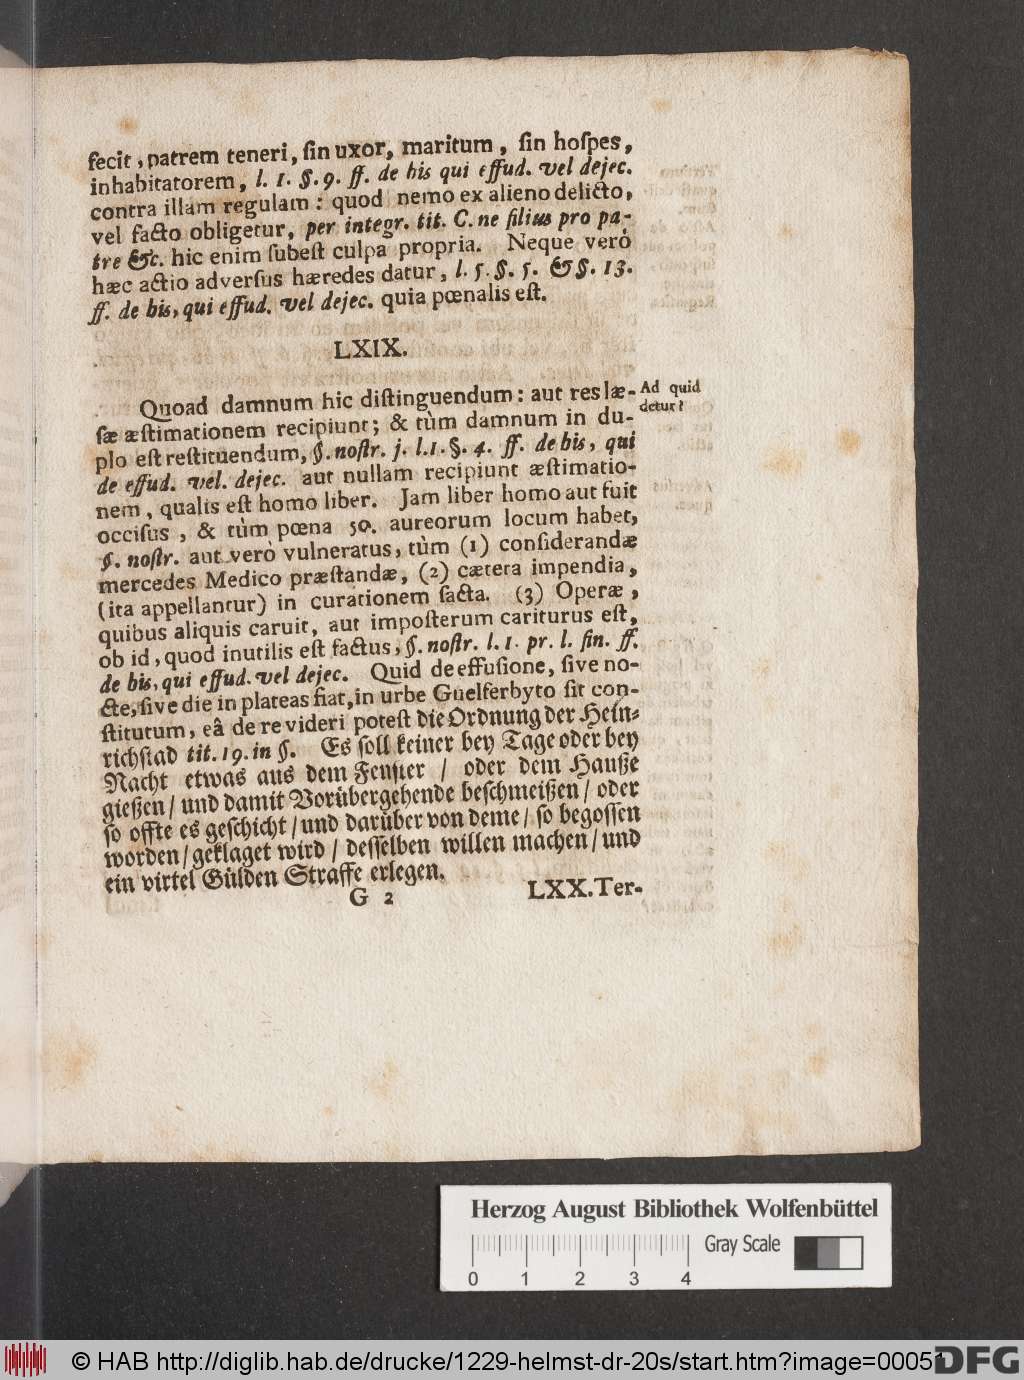 fecit, patrem teneri, ſin uxor, maritum, ſin hoſpes,
inhabitatorem, l. 1. §. 9. ff. de his qui effud. vel dejec.
contra illam regulam: quod nemo ex alieno delicto,
vel facto obligetur, per integr. tit. C. ne filius pro pa-
tre &c. hic enim ſubeſt culpa propria. Neque verò
hæc actio adverſus hæredes datur, l. 5. §. 5. & §. 13.
ff. de his, qui effud. vel dejec. quia pœnalis eſt.
LXIX.
Quoad damnum hic diſtinguendum: aut res læ-
ſæ æſtimationem recipiunt; & tùm damnum in du-
plo eſt reſtituendum, §. noſtr. j. l. 1. §. 4. ff. de his, qui
de effud. vel. dejec. aut nullam recipiunt æſtimatio-
nem, qualis eſt homo liber. Jam liber homo aut fuit
occiſus, & tùm pœna 50. aureorum locum habet,
§. noſtr. aut verò vulneratus, tùm (1) conſiderandæ
mercedes Medico præſtandæ, (2) cætera impendia,
(ita appellantur) in curationem facta. (3) Operæ,
quibus aliquis caruit, aut impoſterum cariturus eſt,
ob id, quod inutilis eſt factus, §. noſtr. l. 1. pr. l. fin. ff.
de his, qui effud. vel dejec. Quid de effuſione, ſive no-
cte, ſive die in plateas fiat, in urbe Guelferbyto ſit con-
ſtitutum, eâ de re videri poteſt die Ordnung der Hein-
richſtad tit. 19. in §. Es ſoll keiner bey Tage oder bey
Nacht etwas aus dem Fenſter / oder dem Hauße
gießen / und damit Vorübergehende beſchmeißen / oder
ſo offte es geſchicht / und darüber von deme / ſo begoſſen
worden / geklaget wird / deſſelben willen machen / und
ein virtel Gülden Straffe erlegen.
G 2
LXX. Ter-
Ad quid
detur?
Herzog August Bibliothek Wolfenbüttel
Gray Scale
0 1 2 3 4
© HAB http://diglib.hab.de/drucke/1229-helmst-dr-20s/start.htm?image=00051
DFG